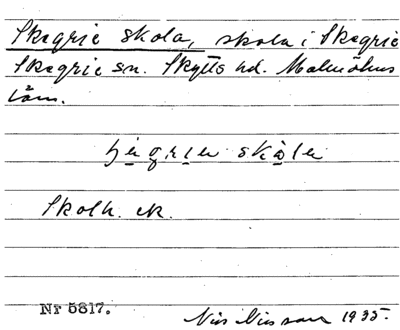 Skegrie skola, skola i Skegrie
Skegrie sn. Skytts hd. Malmöhus
län.
skola
Skolh. ek.
Nr 5817.
Nils Nilsson 1935.